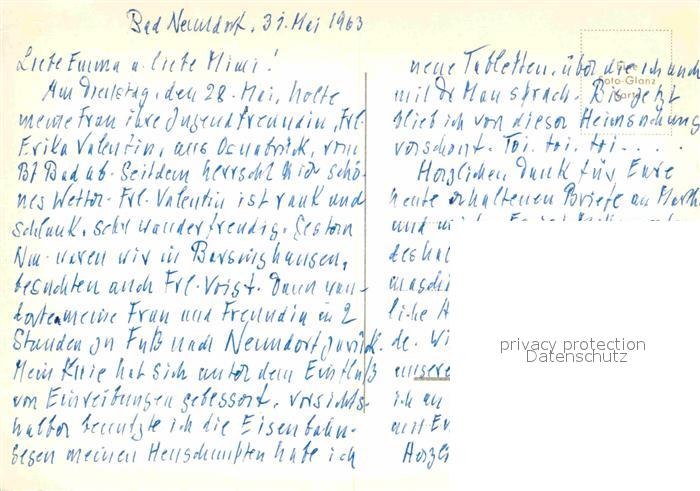 Bad Nenndorf, 31. Mai 1963
Liebe Emma u. liebe Mimi!
Am Dienstag, den 28. Mai, holte
meine Frau ihre Jugendfreundin, Frl.
Erika Valentin, aus Osnabrück, vom
Bf Bad ab. Seitdem herrscht hier schö-
nes Wetter. Frl. Valentin ist rank und
schlank, sehr wanderfreudig. Gestern
Nm. waren wir in Barsinghausen,
besuchten auch Frl. Voigt. Dann wan-
derten meine Frau und Freundin in 2
Stunden zu Fuß nach Nenndorf zurück.
Mein Knie hat sich unter dem Einfluß
von Einreibungen gebessert, vorsichts-
halber benutzte ich die Eisenbahn.
Gegen meinen Heuschnupfen habe ich
neue Tabletten, über die ich auch
mit Dr Mau sprach. Bis jetzt
blieb ich von dieser Heimsuchung
verschont. Toi. toi. toi....
Herzlichen Dank für Eure
heute erhaltenen Briefe an Marth
und
deshal
maschi
liche H
de. Wi
unsere
ich an
mit Er
Herzli
Foto-Glanz
Karte
privacy protection
Datenschutz